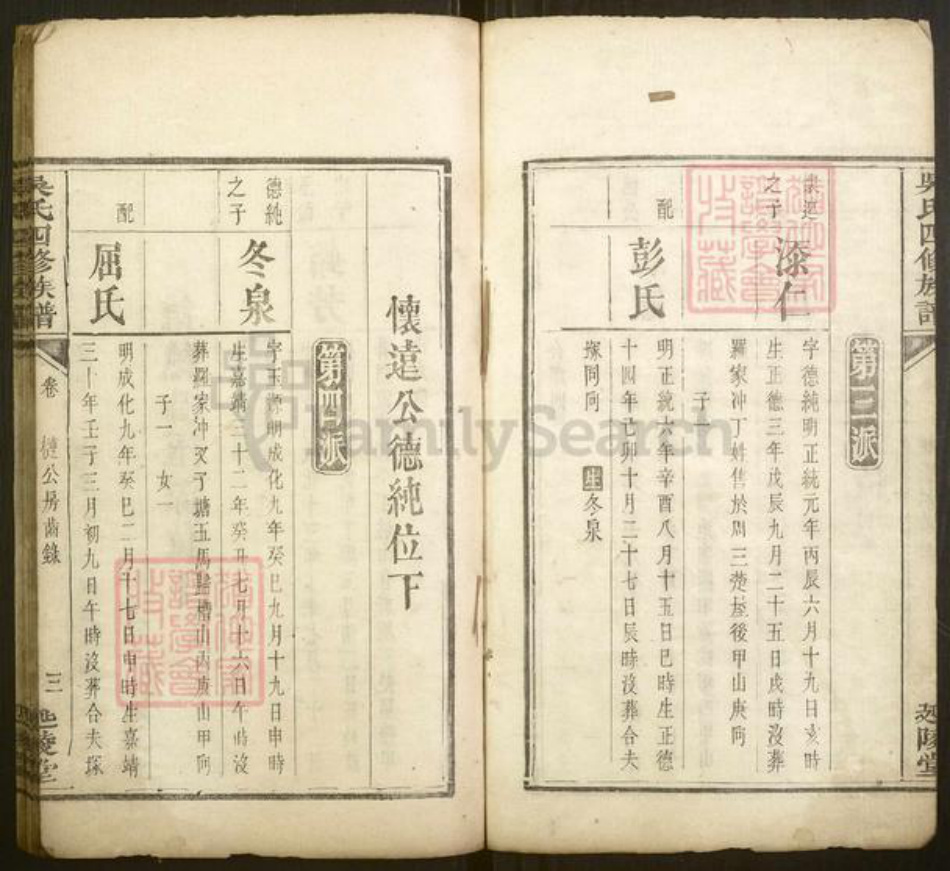 吳氏四修族譜
延陵堂
第三派
之子
添仁
字德純明正統元年丙辰六月十九日亥時
生正德三年戊辰九月二十五日戌時沒葬
羅家冲丁姓售於周三楚屋後甲山庚向
子一
配
彭氏
明正統六年辛酉八月十五日巳時生正德
十四年己卯十月二十七日辰時沒葬合夫
塚同向 生冬泉
懷遠公德純位下
第四派
德純
之子
冬泉
字玉源明成化九年癸巳九月十九日申時
生嘉靖三十二年癸丑七月十六日午時沒
葬羅家冲 塘五馬歸槽山丙庚山甲向
子一 女一
配
屈氏
明成化九年癸巳二月十七日申時生嘉靖
三十年壬子三月初九日午時沒葬合夫塚
吳氏四修族譜
卷
公房齒錄
三
延陵堂
譜學會
收藏
譜學會
收藏
FamilySearch